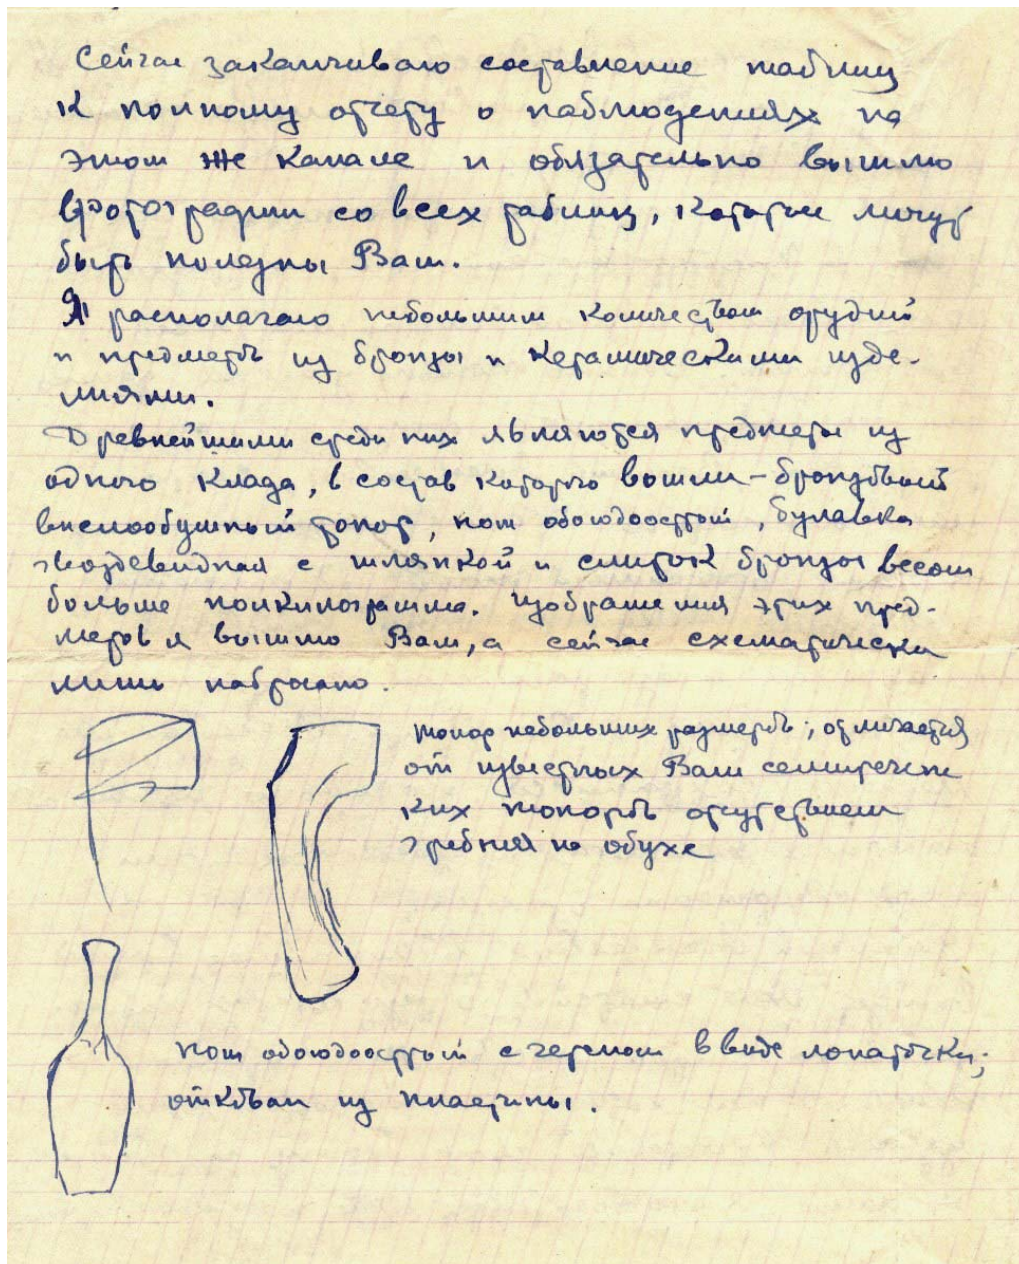 Сейчас заканчиваю составление таблиц
к полному отчету о наблюдениях на
этом же канале и обязательно вышлю
фотографии со всех таблиц, которые могут
быть полезны Вам.
Я располагаю небольшим количеством орудий
и предметов из бронзы и керамическими изде-
лиями.
Древнейшими среди них являются предметы из
одного клада, в состав которого вошли - бронзовый
вислообушный топор, нож обоюдоострый, булавка
гвоздевидная с шляпкой и слиток бронзы весом
больше полкилограмма. Изображения этих пред-
метов я вышлю Вам, а сейчас схематически
лишь набросаю.
топор небольших размеров; отличается
от известных Вам семиречен
ких топоров отсутствием
гребня на обухе
нож обоюдоострый с череном в виде лопаточки;
откован из пластины.